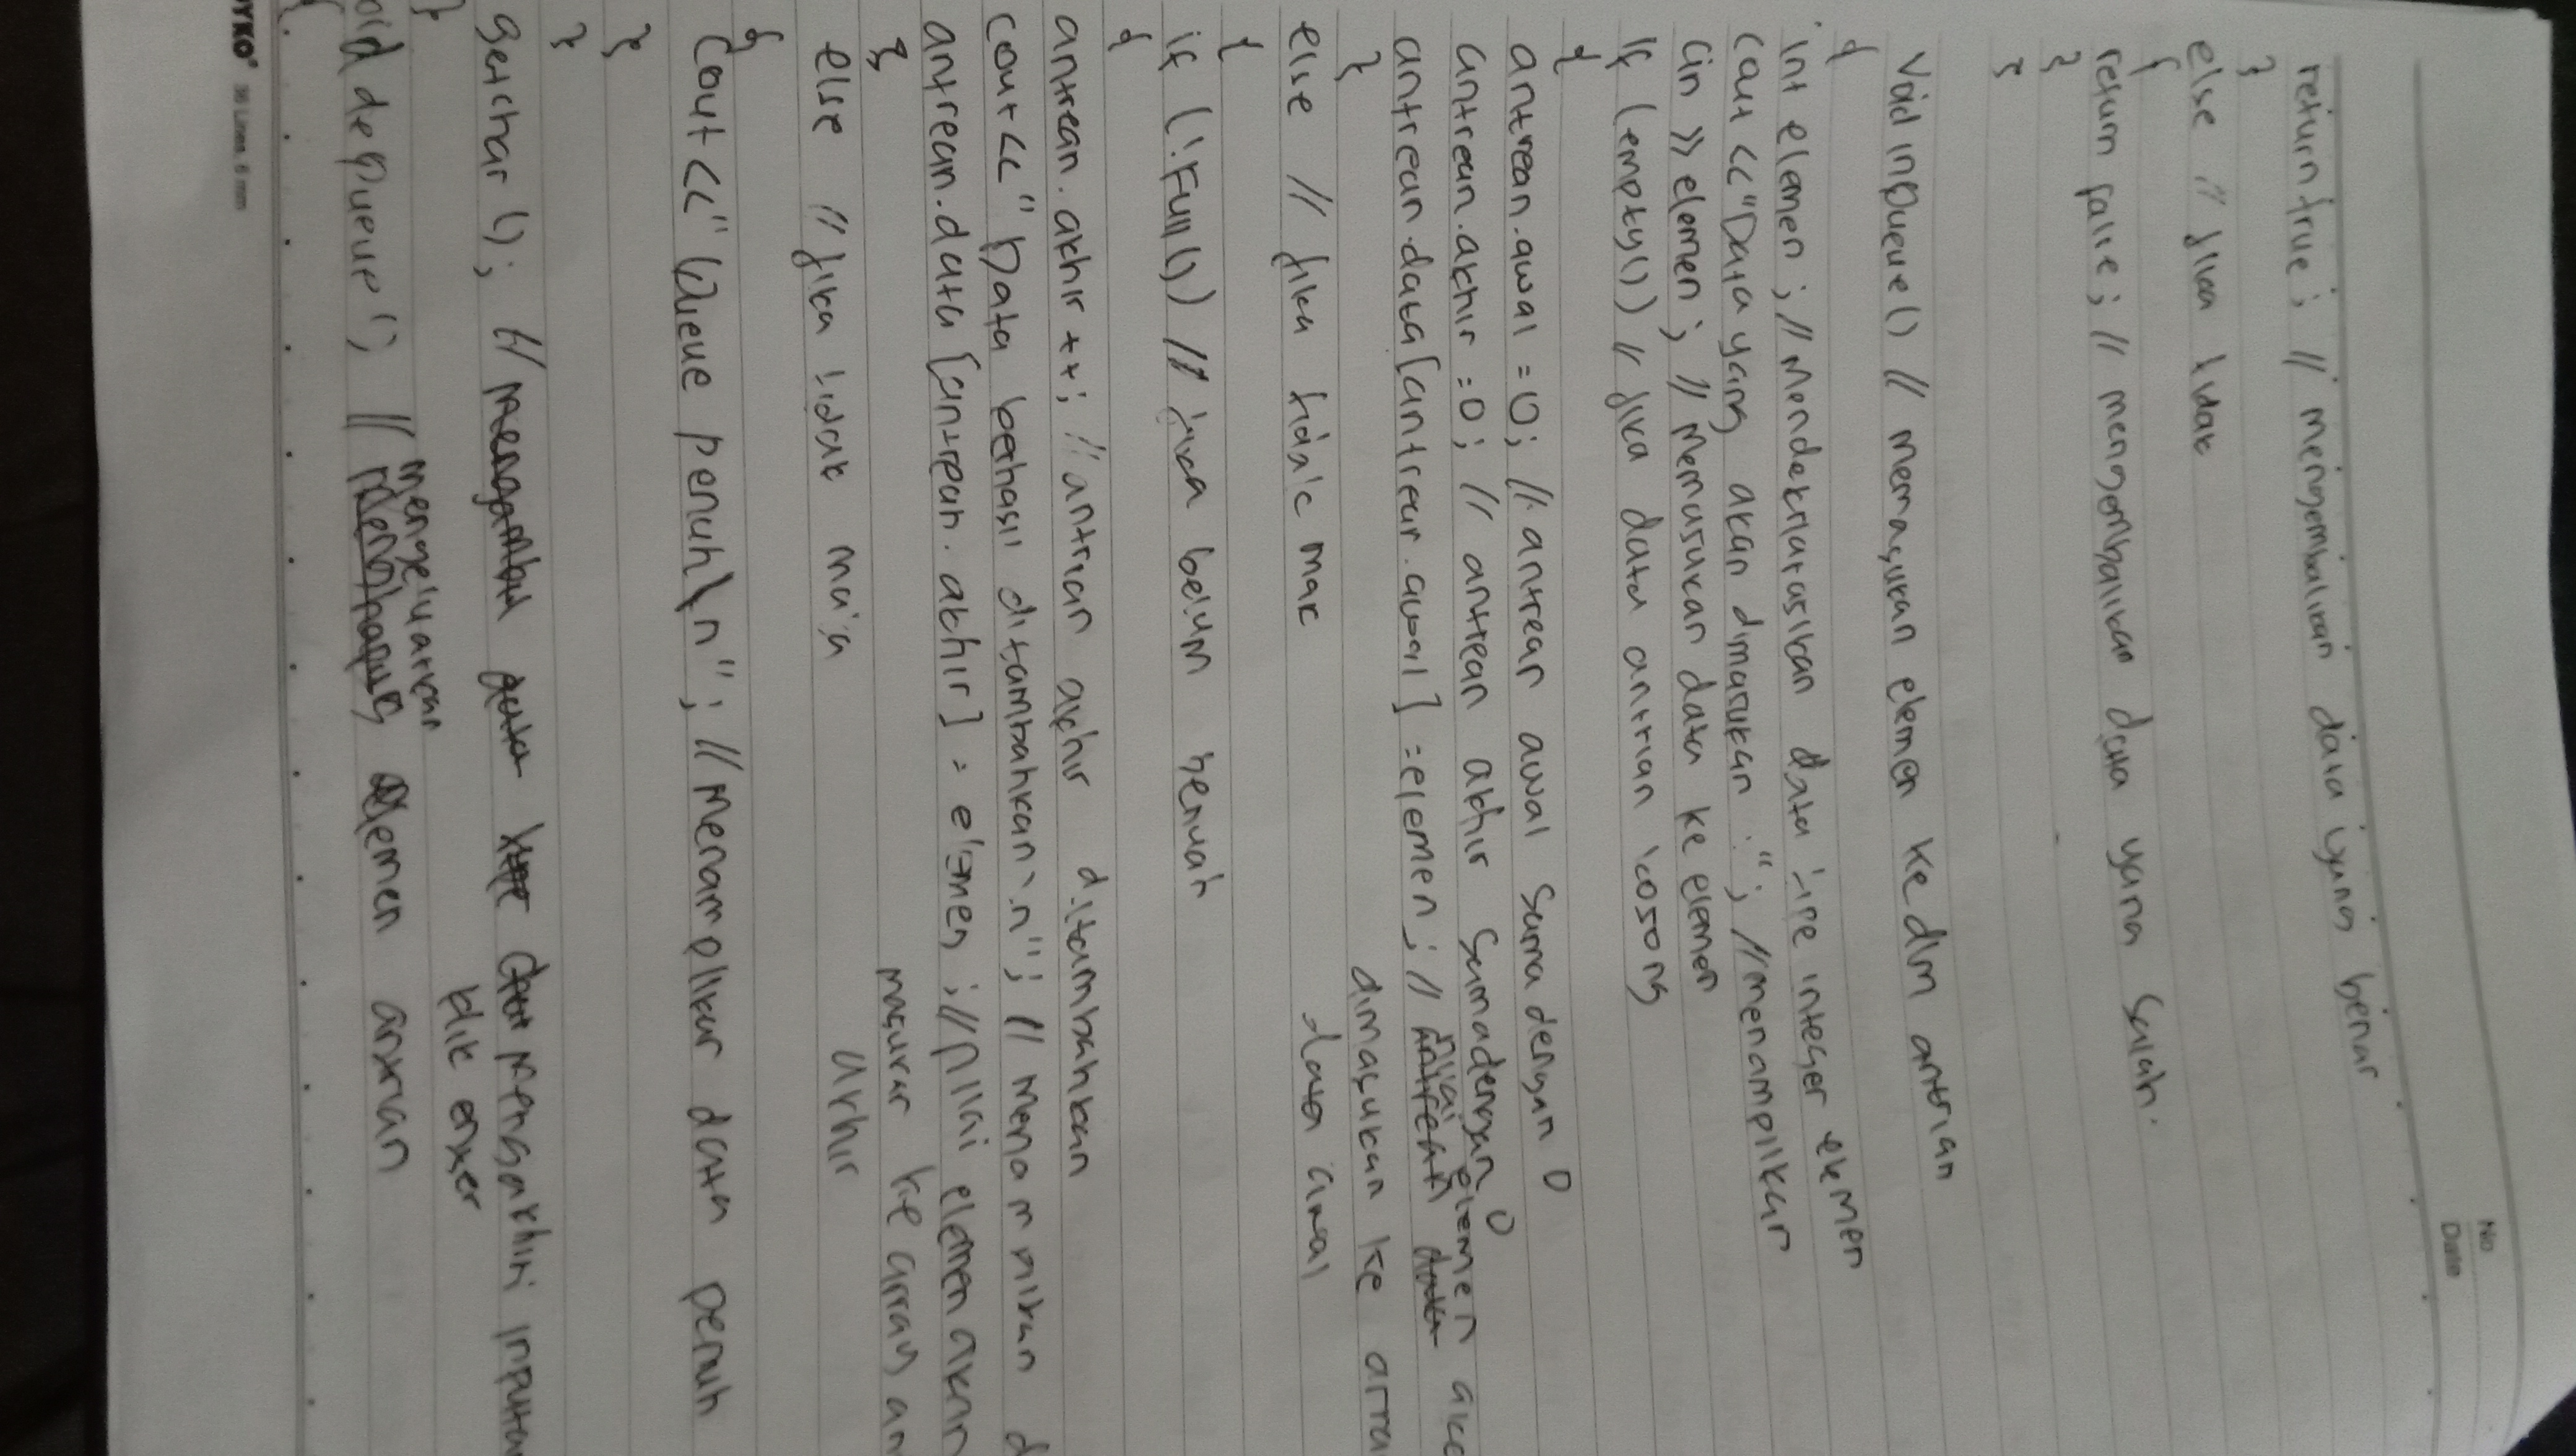 No
Date
return true; // mengembalikan data yang benar
}
else // jika tidak
{
return false; // mengembalikan data yang salah.
}
}
void inqueue() // memasukan elemen ke dlm antrian
{
int elemen; // Mendeklarasikan data tipe integer elemen
cout <<"Data yang akan dimasukan : "; // menampilkan
cin >> elemen; // Memasukan data ke elemen
if (empty()) // jika data antrian kosong
{
antrean.awal = 0; // antrean awal sama dengan 0
antrean.akhir = 0; // antrean akhir sama dengan 0
antrean.data[antrean.awal] = elemen; // nilai elemen
dimasukan ke
data awal
}
else // jika tidak
{
if (!Full()) // jika belum penuh
{
antrean.akhir ++; // antrian akhir ditambahkan
cout <<" Data berhasil ditambahkan\n"; // menampilkan
antrean.data [antrean.akhir] = elemen; // Nilai elemen akan
masukan ke array
akhir
}
else // jika tidak
{
cout <<" Queue penuh\n"; // Menampilkan data penuh
}
}
getchar (); // Mengakhiri
klik enter
}
dequeue(); // mengeluarkan elemen antrian
{
36 Lines, 6 mm